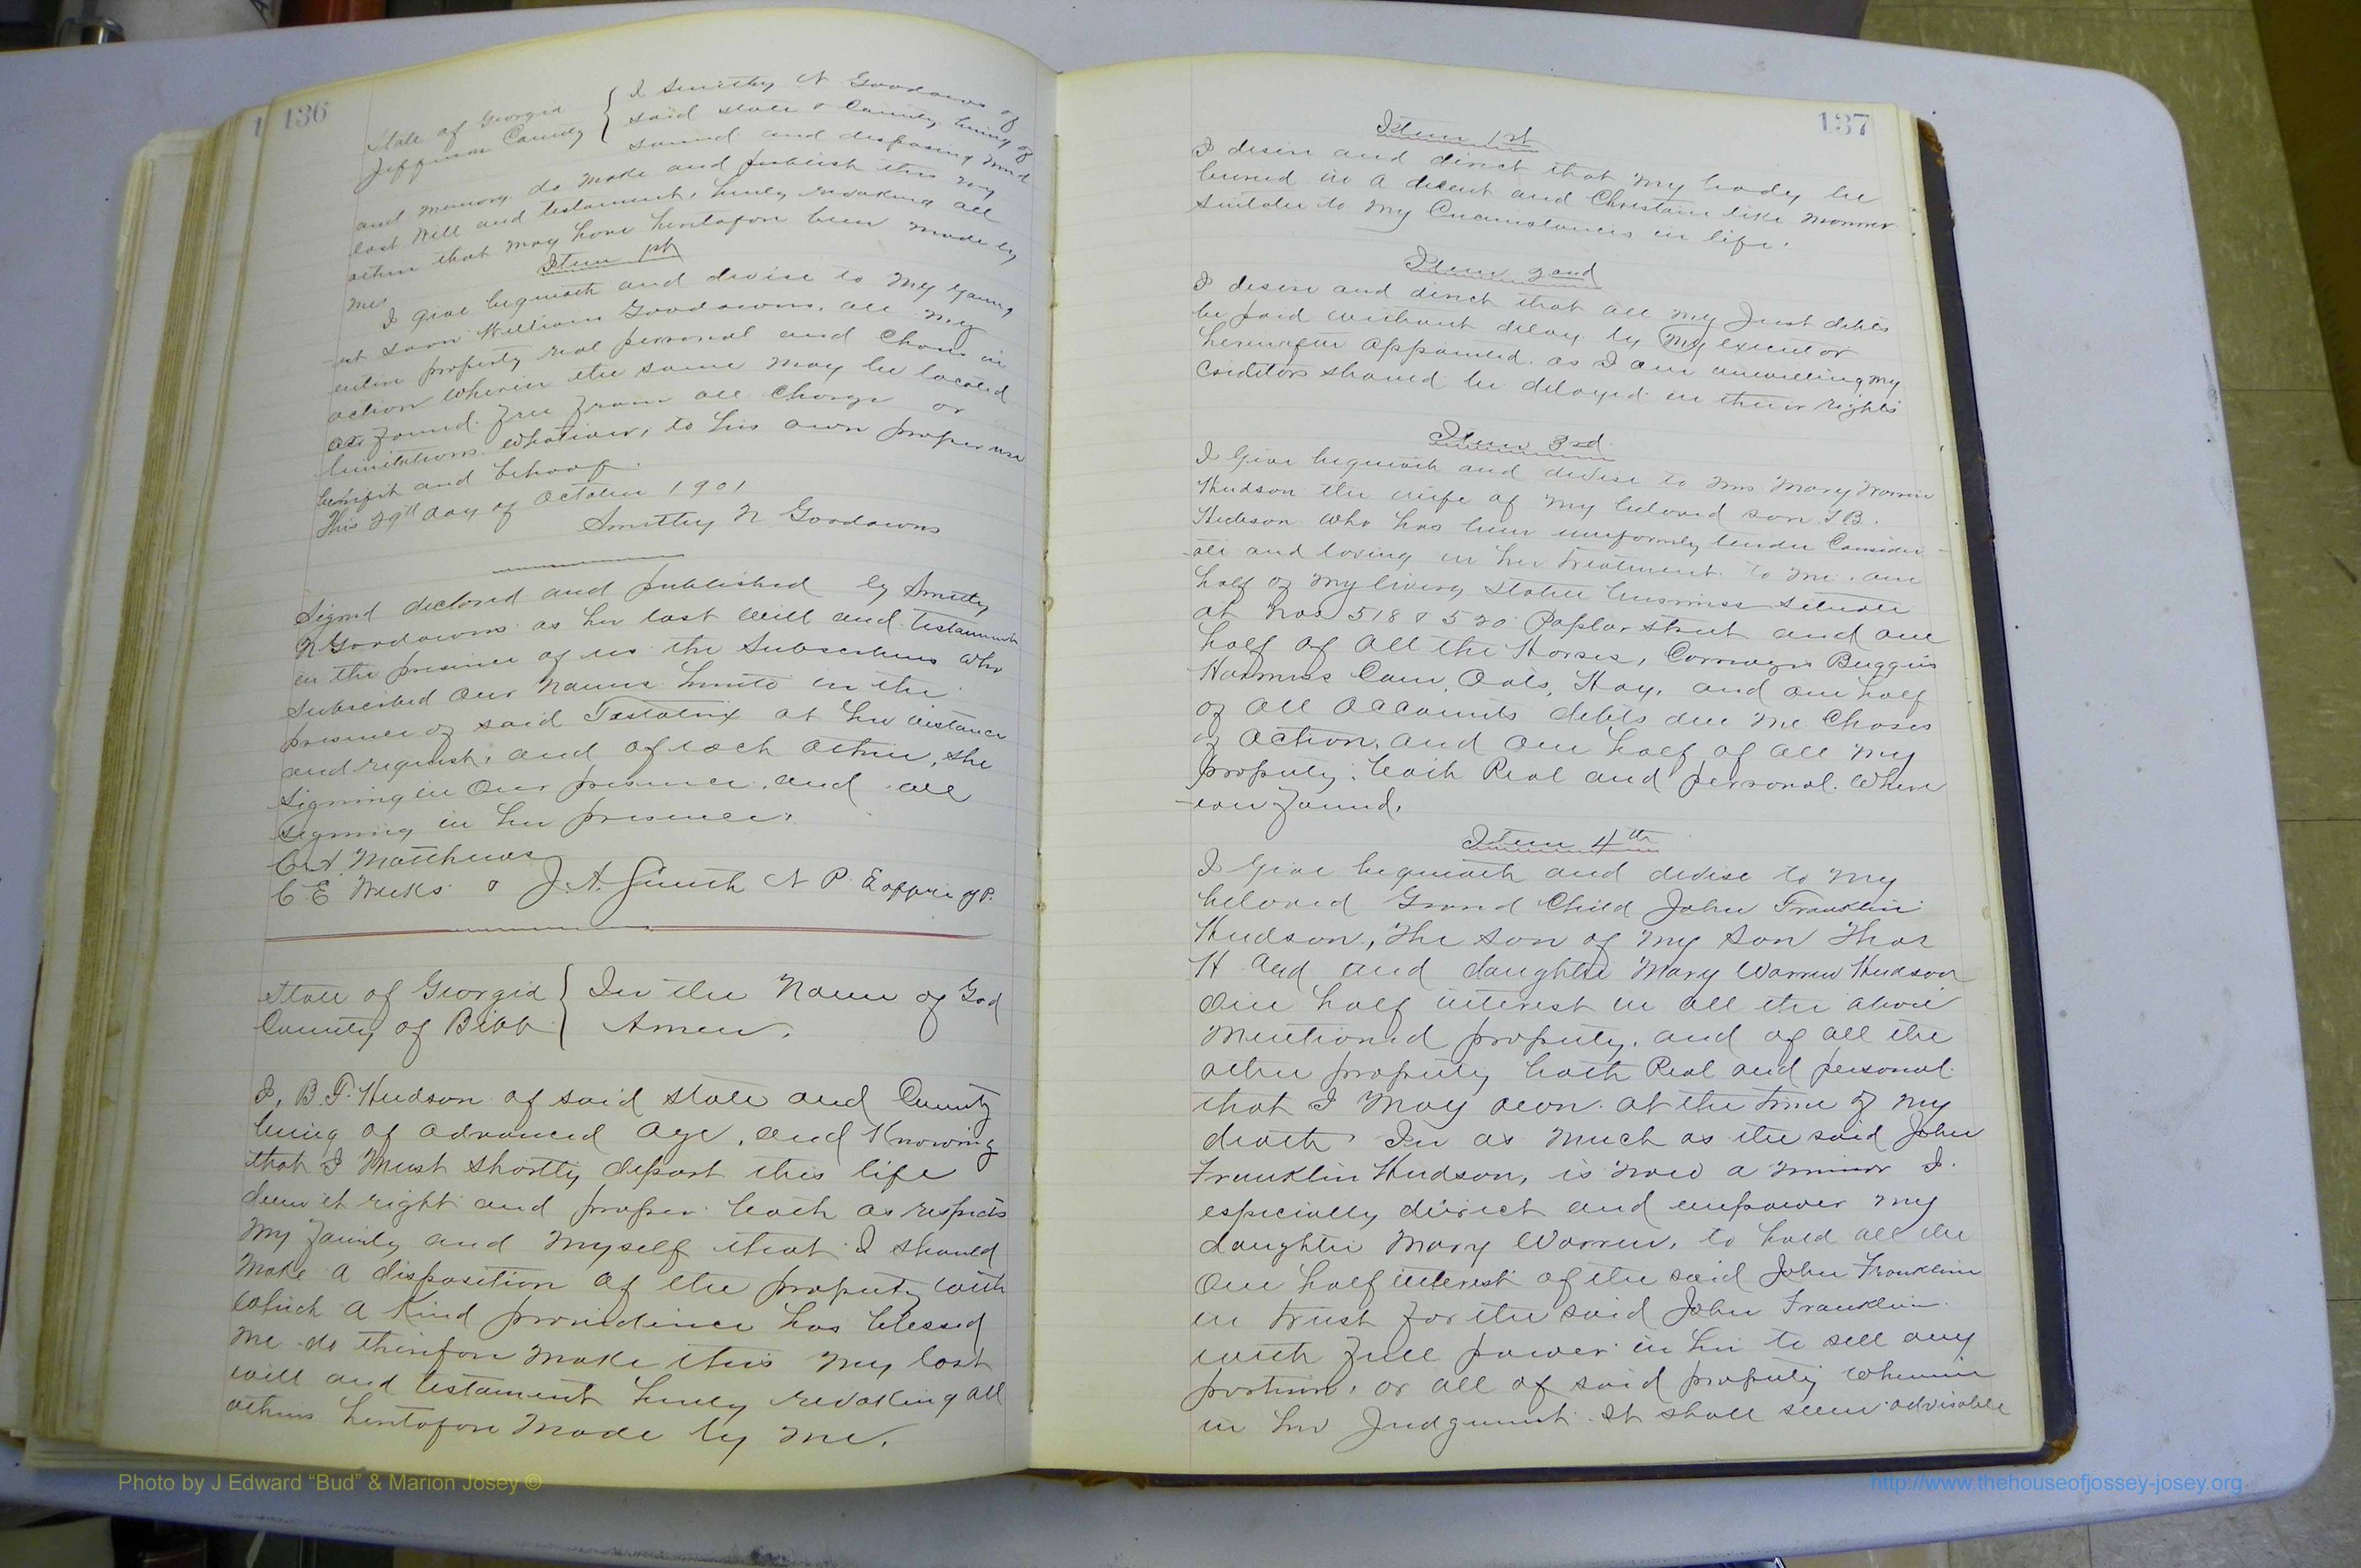 136
State of Georgia
Jefferson County
I Smithy N Goodowns of
said state & County being of
sound and disposing mind
and memory do make and publish this my
last Will and testament, hereby revoking all
others that may have heretofore been made by
me
Item 1st
I give bequeath and devise to my young
est son William Goodowns, all my
entire property real personal and Chose in
action wherein the same may be located
or found. free from all charge or
limitations whatever, to his own proper use
benefit and behoof.
This 29th day of October 1901
Smithy N Goodowns
Signed declared and published by Smithy
N Goodowns as her last will and testament
in the presence of us the Subscribers who
subscribed our names hereto in the
presence of said Testatrix at her instance
and request, and of each other, she
signing in our presence, and all
signing in her presence.
Matthews
C E Weeks & J. A. Smith N P. Exoffico J P.
State of Georgia
County of Bibb
In the Name of God
Amen.
I, B. F. Hudson of said state and County
being of advanced age, and Knowing
that I Must shortly depart this life
deem it right and proper both as respects
My family and Myself that I should
Make a disposition of the property with
which a Kind providence has blessed
me do therefore make this my last
will and testament hereby revoking all
others heretofore made by me.
137
Item 1st
I desire and direct that my body be
buried in a decent and Christain like manner
suitable to my Cucumstances in life.
Item 2and
I desire and direct that all my Just debts
be paid without delay by my executor
hereinafter appointed. as I am unwilling my
creditors should be delayed in their rights
Item 3rd
I Give bequeath and devise to Mrs Mary Warren
Hudson the wife of my beloved son T B.
Hudson who has been uniformly tender Consider
-ate and loving in her treatment to me. one
half of my livery stable business situate
at Nos 518 & 520 Poplar street and one
half of all the Horses, Carriages Buggies
Harness Corn, Oats, Hay, and one half
of all accounts debts due me Choses
of action, and one half of all my
property, both Real and personal. Where
-ever found.
Item 4th
I Give bequeath and devise to my
beloved Grand Child John Franklin
Hudson, the son of my son Thos
H and and daughter Mary Warren Hudson
One half interest in all the above
Mentioned property, and of all the
other property both Real and personal
that I May own at the time of my
death. In as much as the said John
Franklin Hudson, is now a minor I.
especially direct and empower my
daughter Mary Warren, to hold all the
one half interest of the said John Franklin
in trust for the said John Franklin
with full power in her to sell any
portion, or all of said property whenever
in her Judgment it shall seem advisable
Photo by J Edward “Bud” & Marion Josey ©
http://www.thehouseofjossey-josey.org